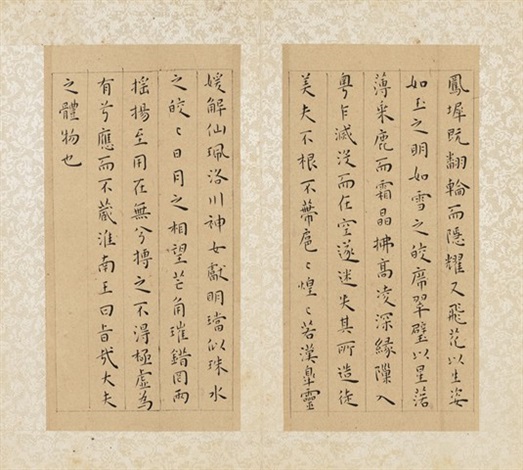 鳳墀既翻輪而隱耀又飛花以生姿
如玉之明如雪之皎席璧以星落
薄采而霜晶拂高凌深緣隟入
奧乍滅没而在空遂迷失其所造徒
美夫不根不蔕扈々煌々若漢皐靈
媛解仙珮洛川神女獻明璫似珠水
之皎々日月之相望芒角璀錯罔兩
摇揚至用在無兮摶之不得極虛為
有兮應而不藏淮南王曰旨哉大夫
之體物也